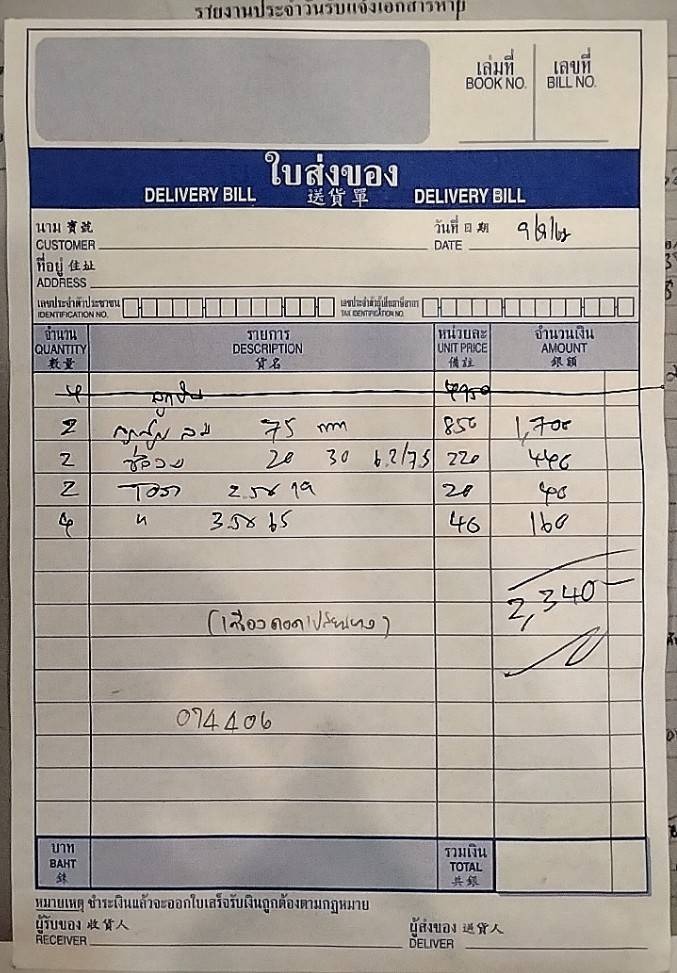 รายงานประจำวันรับแจ้งเอกสารหาย
เล่มที่ เลขที่
BOOK NO. BILL NO.
ใบส่งของ
DELIVERY BILL 送貨單 DELIVERY BILL
นาม 寶號 วันที่ 日期
CUSTOMER DATE
ที่อยู่ 住址
ADDRESS
เลขประจำตัวประชาชน เลขประจำตัวผู้เสียภาษีอากร
IDENTIFICATION NO. TAX IDENTIFICATION NO.
จำนวน รายการ หน่วยละ จำนวนเงิน
QUANTITY DESCRIPTION UNIT PRICE AMOUNT
數量 貨名 備註 銀額
4 ลูกปืน
2 ลูกสูบ ลม 75 mm 850 1,700
2 20 30 62/75 220 440
2 25 × 19 20 40
4 " 35 × 65 40 160
2,340-
074406
บาท รวมเงิน
BAHT TOTAL
銖 共銀
หมายเหตุ ชำระเงินแล้วจะออกใบเสร็จรับเงินถูกต้องตามกฎหมาย
ผู้รับของ 收貨人 ผู้ส่งของ 送貨人
RECEIVER DELIVER